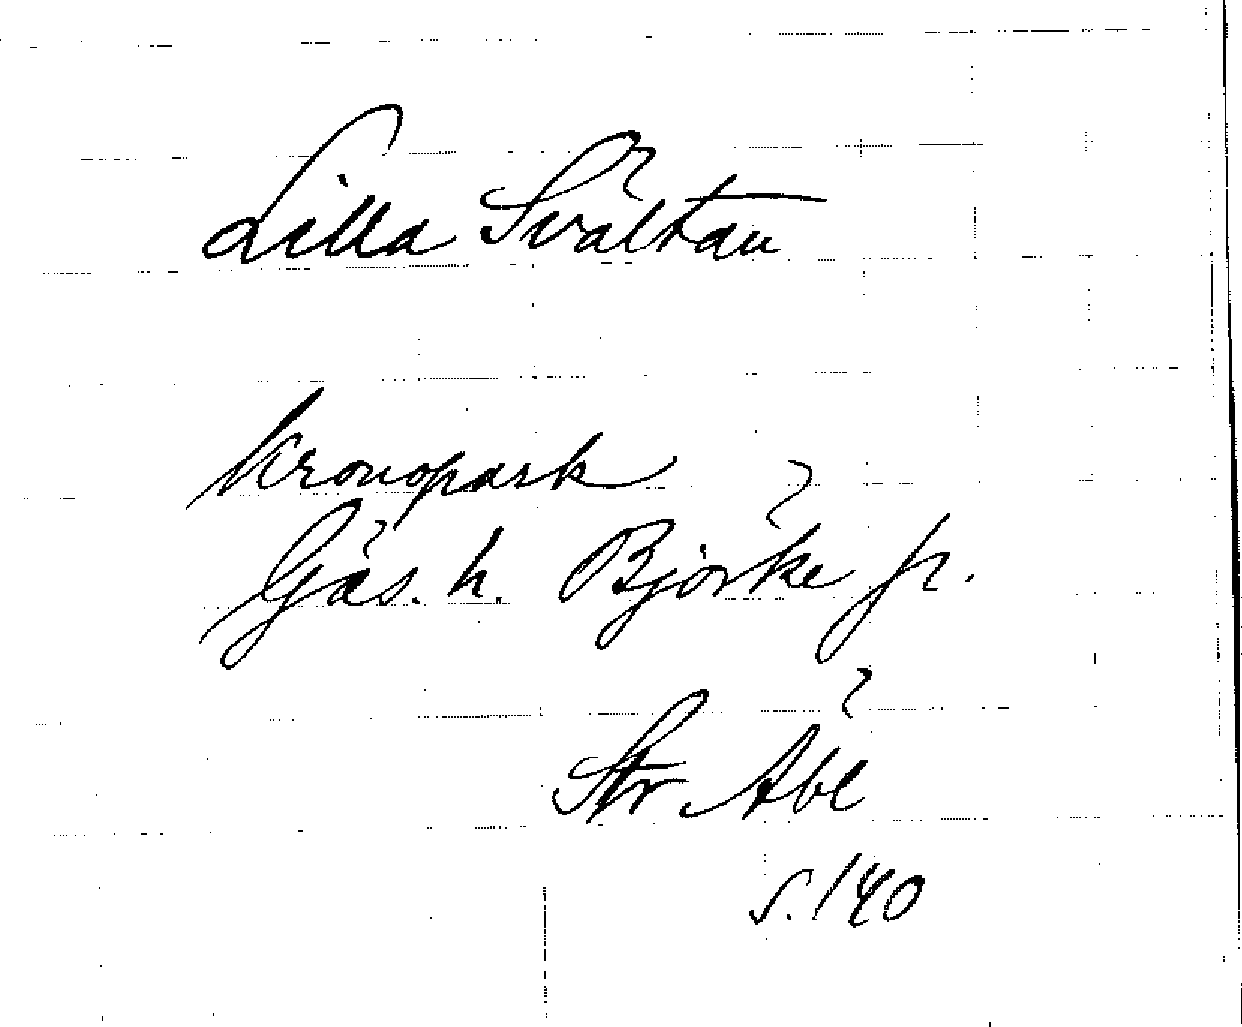 Lilla Svältan
Kronopark
Gäs. h. Björke fr.
Str Åbl
s. 140